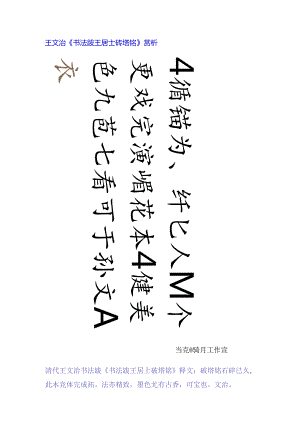 王文治《书法跋王居士砖塔铭》赏析
4循锚为、纤匕人M个
更戏完演嵋花本4健美
色九芭七看可于孙文A
衣
当克#骑月工作宜
清代王文治书法跋《书法跋王居上破塔铭》释文：碳塔铭石碑已久,
此本竞体完成拓。法亦精致，墨色尤有古香，可宝也。文治。